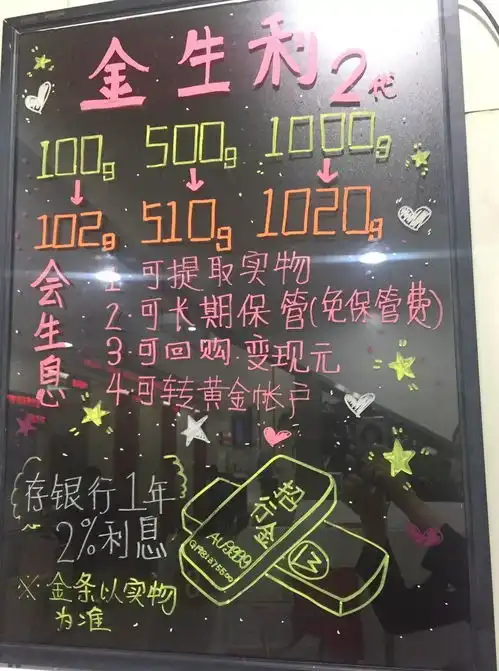 金生利2代
100g 500g 1000g
↓ ↓ ↓
102g 510g 1020g
会生息
1 可提取实物
2·可长期保管(免保管费)
3·可回购·变现元
4·可转黄金帐户
存银行1年
2%利息
※·金条以实物
为准
招行金
AU9999